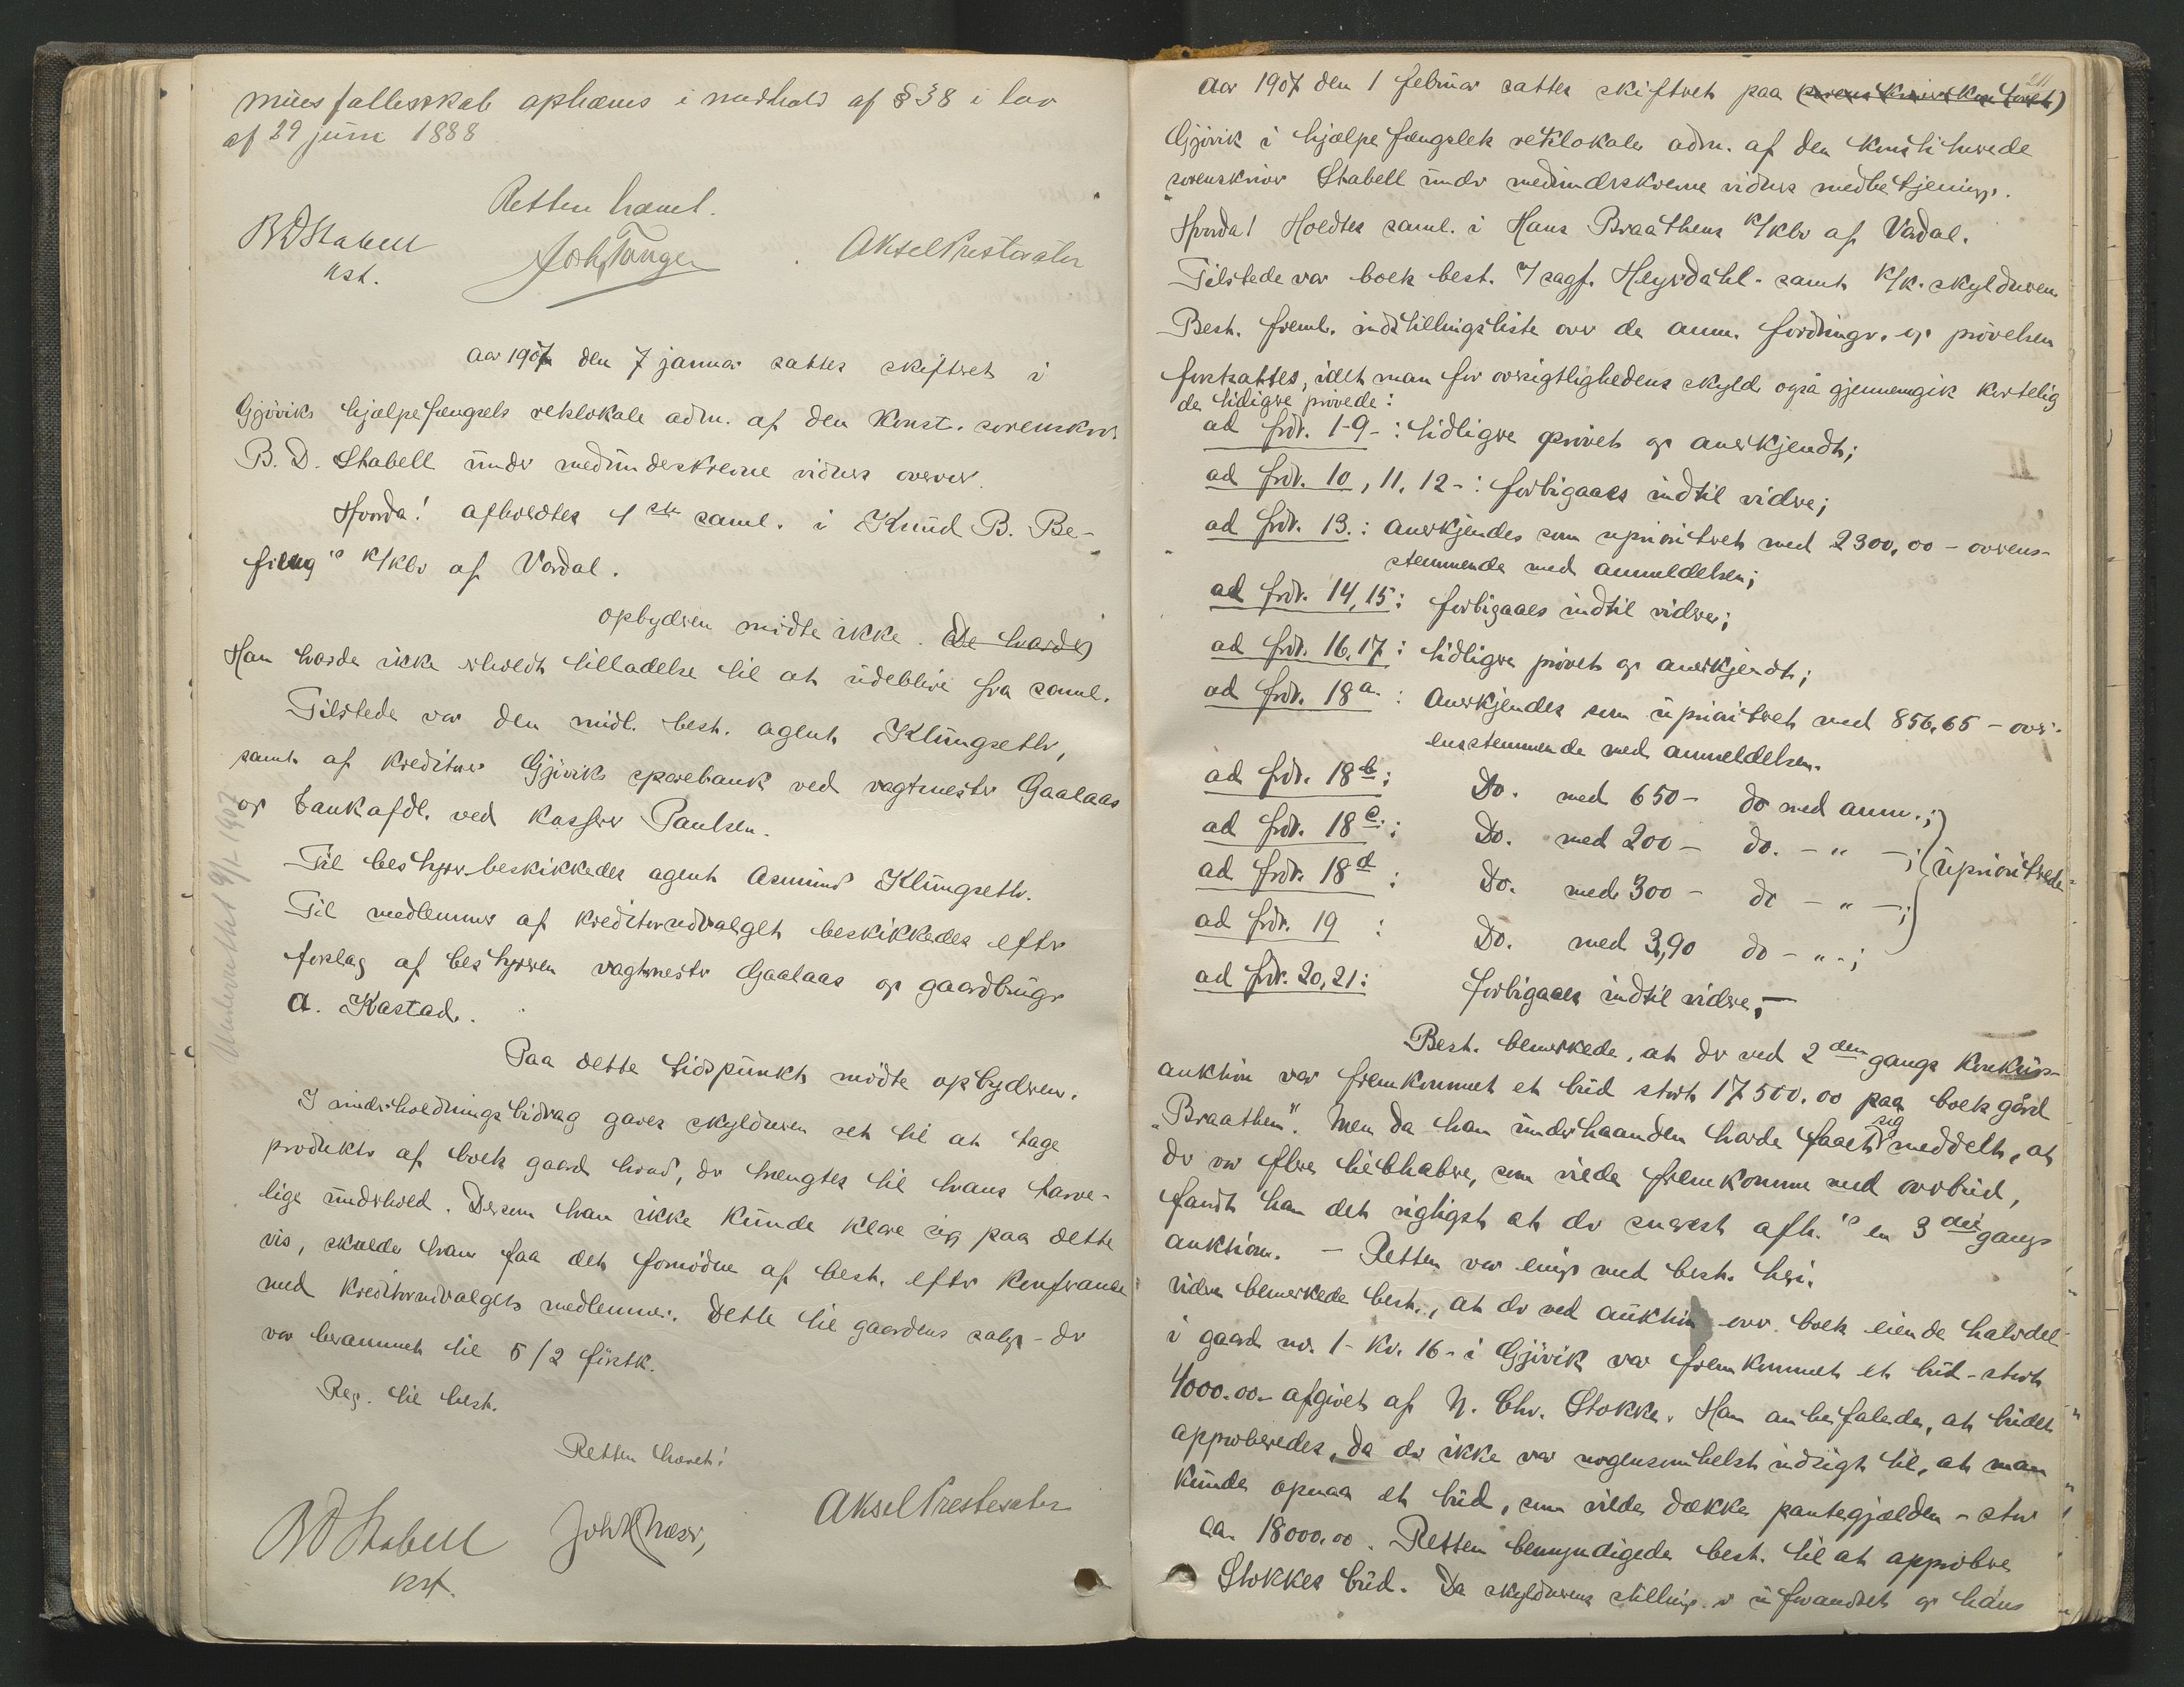 muesfællesskab ophæves i medhold af § 38 i lov
af 29 juni 1888
Retten hævet.
BDStabell
kst.
Joh. Tanger
Aksel Prestesæter
Aar 1907 den 7 januar sattes skifteret i
Gjøviks hjælpefængsels retslokale adm. af den konst. sorenskriv
B. D. Stabell under medundeskrevne vidners overvær.
Hvorda! afholdtes 1ste saml. i Knud B. Be-
freng's k/kbo af Vardal.
Opbyderen mødte ikke. De havdes
Han havde ikke erholdt tilladelse til at udeblive fra saml.
Tilstede var den midl. best. agent Klungseth,
samt af kreditorer Gjøviks sparebank ved vagtmester Gaalaas
og Bankafdl. ved kasserer Paulsen.
Til bestyrer beskikkedes agent Asmund Klungseth.
Til medlemmer af kreditorudvalget beskikkedes efter
forslag af bestyreren vagtmester Gaalaas og gaardbruger
A. Kastad.
Paa dette tidspunkt mødte opbyderen.
I underholdningsbidrag gaves skyldneren ret til at tage
produkter af boets gaard hvad, der trængtes til hans tarve-
lige underhold. Dersom han ikke kunde klare sig paa dette
vis, skulde han faa det fornødne af best. efter konferance
med kreditorudvalgets medlemmer. Dette til gaardens salg - der
var berammet til 5/2 førstk.
Reg. til best.
Retten hævet!
BDStabell
kst.
Aksel Prestesæter
Aar 1907 den 1 februar sattes skifteret paa (sorenskriverkontoret)
Gjøvik i hjælpefængslets retslokale adm. af den konstituerede
sorenskriver Stabell under medunderskrevne vidners medbetjening.
Hvorda! Holdtes saml. i Hans Braathens k/kbo af Vardal.
Tilstede var boets best. o/sagf. Heyerdahl - samt k/k. skyldneren
Best. freml. indstillingsliste over de anm. fordringer. og prøvelsen
fortsattes, idet man for oversigtlighedens skyld også gjennemgik kortelig
de tidligere prøvede:
ad fdr. 1-9-: tidligere prøvet og anerkjendt;
ad fdr. 10, 11, 12-: forbigaaes indtil videre;
ad fdr. 13.: anerkjendes som uprioriteret med 2300,00 - overens-
stemmende med anmeldelsen;
ad fdr. 14, 15: forbigaaes indtil videre;
ad fdr. 16, 17: tidligere prøvet og anerkjendt;
ad fdr. 18 a.: Anerkjendes som uprioriteret med 856,65 - over-
ensstemmende med anmeldelsen.
ad fdr. 18 b: Do. med 650 - do med anm.;
ad fdr. 18 c.: Do. med 200 - do. - " -;
uprioriterede
ad fdr. 18 d: Do. med 300 - do - " -;
ad fdr. 19: Do. med 3,90 do - " -;
ad fdr. 20, 21: forbigaaes indtil videre;-
Best. bemerkede, at der ved 2den gangs konkurs-
auktion var fremkommet et bud stort 17500.00 paa boets gård
"Braathen". Men da han underhaanden havde faaet sig meddelt, at
der var flere liebhabere, som vilde fremkomme med overbud,
fandt han det rigtigst at der snarest afh. en 3die gangs
auktion. - Retten var enig med best. heri.
Videre bemerkede best., at der ved auktion over boets eiende halvdel
i gaard no. 1 - kv. 16 - i Gjøvik var fremkommet et bud - stort
4000.00 - afgivet af N. Chr. Stokke. Han anbefalede, at budet
approberedes, da der ikke var nogensomhelst udsigt til, at man
kunde opnaa et bud, som vilde dække pantegjælden - stor
ca. 18000.00. Retten bemyndigede best. til at approbere
Stokkes bud. Da skyldnerens stilling er uforandret og hans